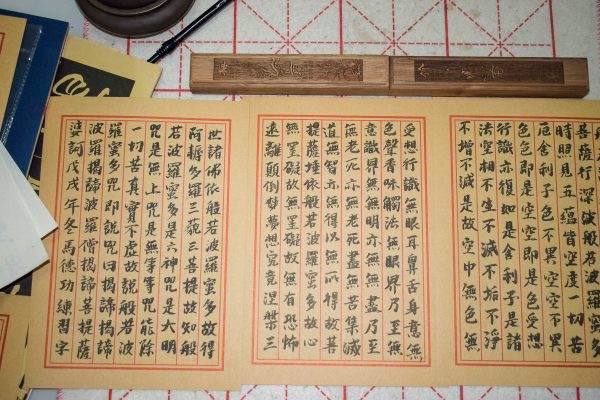 菩薩行深般若波羅蜜多
時照見五蘊皆空度一切苦
厄舍利子色不異空空不異
色色即是空空即是色受想
行識亦復如是舍利子是諸
法空相不生不滅不垢不淨
不增不減是故空中無色無
受想行識無眼耳鼻舌身意無
色聲香味觸法無眼界乃至無
意識界無無明亦無無盡乃至
無老死亦無老死盡無苦集滅
道無智亦無得以無所得故菩
提薩埵依般若波羅蜜多故心
無罣礙故無罣礙故無有恐怖
遠離顛倒夢想究竟涅槃三
世諸佛依般若波羅蜜多故得
阿耨多羅三藐三菩提故知般
若波羅蜜多是大神咒是大明
咒是無上咒是無等等咒能除
一切苦真實不虛故說般若波
羅蜜多咒即說咒曰揭諦揭諦
波羅揭諦波羅僧揭諦菩提薩
婆訶戊戌年冬馬德功練習字